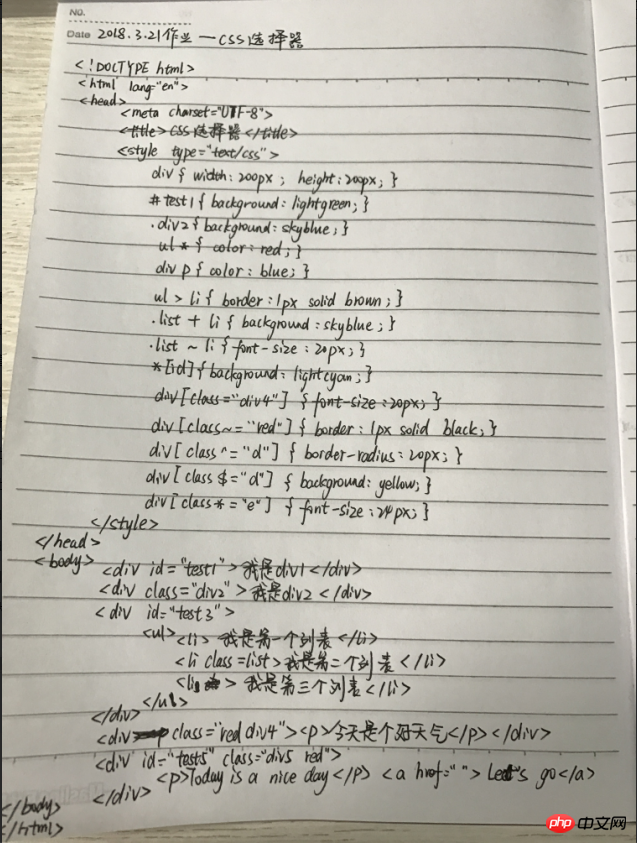 No.
Date 2018.3.21作业—CSS选择器
<!DOCTYPE html>
<html lang="en">
<head>
<meta charset="UTF-8">
<title>CSS选择器</title>
<style type="text/css">
div{ width:200px; height:200px;}
#test1{ background:lightgreen;}
.div2{ background:skyblue;}
ul *{ color:red;}
div p{ color:blue;}
ul > li{ border:1px solid brown;}
.list + li{ background:skyblue;}
.list ~ li{ font-size:20px;}
*[id]{ background:lightcyan;}
div[class="div4"] { font-size:20px;}
div[class~="red"]{ border:1px solid black;}
div[class^="d"]{ border-radius:20px;}
div[class$="d"]{ background:yellow;}
div[class*="e"] { font-size:24px;}
</style>
</head>
<body>
<div id="test1">我是div1</div>
<div class="div2">我是div2</div>
<div id="test3">
<ul><li>我是第一个列表</li>
<li class=list>我是第二个列表</li>
<li>我是第三个列表</li>
</ul>
</div>
<div class="red div4"><p>今天是个好天气</p></div>
<div id="test5" class="div5 red">
<p>Today is a nice day</p> <a href=" "> Let's go</a>
</div>
</body>
</html>
php 中文网